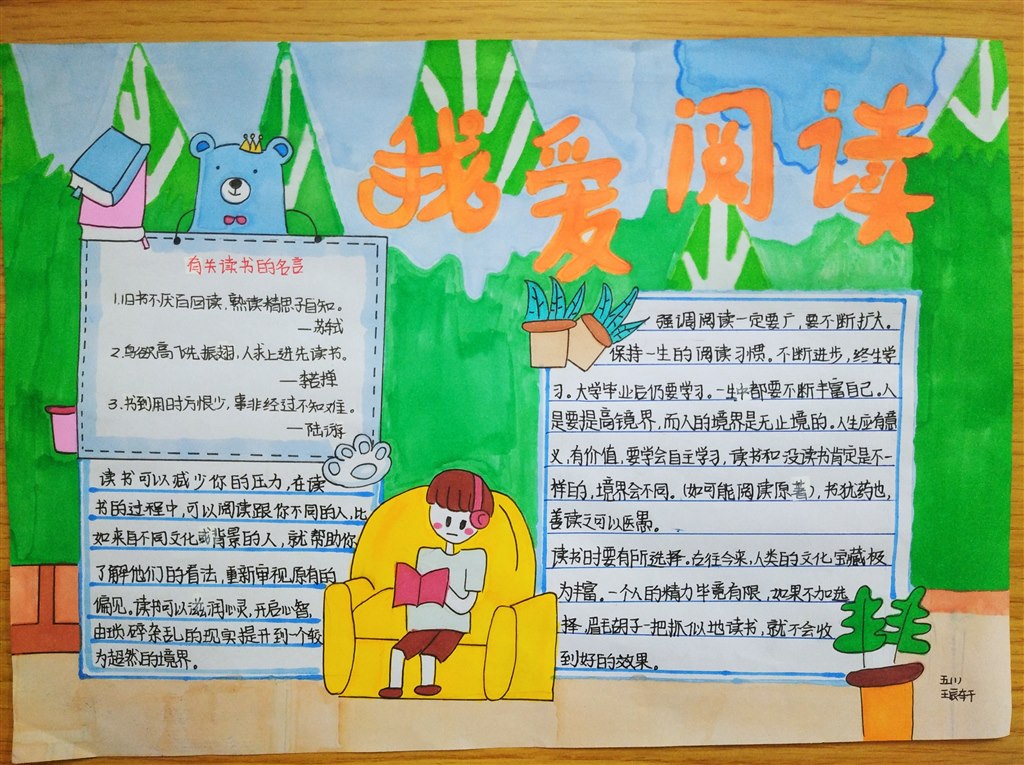 我爱阅读
有关读书的名言
1.旧书不厌百回读,熟读精思子自知。
—苏轼
2.鸟欲高飞先振翅,人求上进先读书。
—李若禅
3.书到用时方恨少,事非经过不知难。
—陆游
读书可以减少你的压力,在读
书的过程中,可以阅读跟你不同的人,比
如来自不同文化或背景的人,就帮助你
了解他们的看法,重新审视原有的
偏见。读书可以滋润心灵,开启心智,
由琐碎杂乱的现实提升到一个较
为超然的境界。
强调阅读一定要广,要不断扩大。
保持一生的阅读习惯。不断进步,终生学
习。大学毕业后仍要学习。一生中都要不断丰富自己。人
是要提高镜界,而人的境界是无止境的。人生应有意
义,有价值,要学会自主学习,读书和没读书肯定是不一
样的,境界会不同。(如可能阅读原著),书犹药也,
善读之可以医愚。
读书时要有所选择。古往今来,人类的文化宝藏极
为丰富。一个人的精力毕竟有限,如果不加选
择 眉毛胡子一把抓似地读书,就不会收
到好的效果。
五(1)
王宸轩